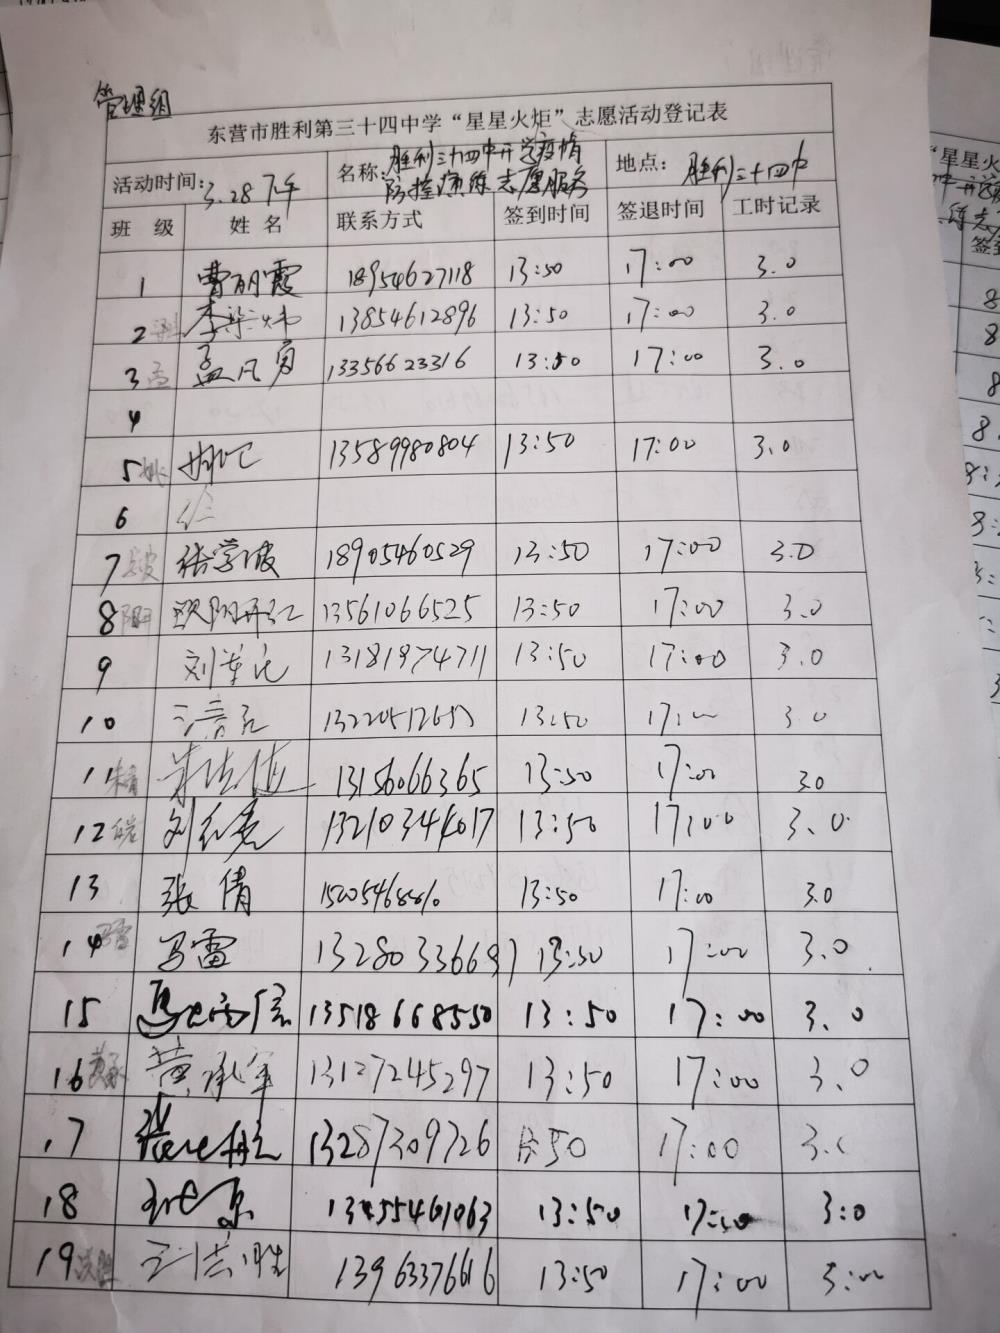 管理组
东营市胜利第三十四中学“星星火炬”志愿活动登记表
活动时间: 3.28 下午 名称: 胜利三十四中开学疫情防控演练志愿服务 地点: 胜利三十四中
班 级 姓 名 联系方式 签到时间 签退时间 工时记录
1 曹丽霞 18954627118 13:50 17:00 3.0
2 13854612896 13:50 17:00 3.0
3 孟凡勇 13356623316 13:50 17:00 3.0
4
5 13589980804 13:50 17:00 3.0
6
7 张学波 18905460529 13:50 17:00 3.0
8 欧阳开红 13561066525 13:50 17:00 3.0
9 13181974711 13:50 17:00 3.0
10 13:50 17:00 3.0
11 13156066365 13:50 17:00 3.0
12 13210344017 13:50 17:00 3.0
13 张倩 13:50 17:00 3.0
14 马雷 13280336697 13:50 17:00 3.0
15 13518668550 13:50 17:00 3.0
16 黄承军 13127245297 13:50 17:00 3.0
17 13287309726 13:50 17:00 3.0
18 13455461063 13:50 17:00 3:0
19 13963376616 13:50 17:00 3:00